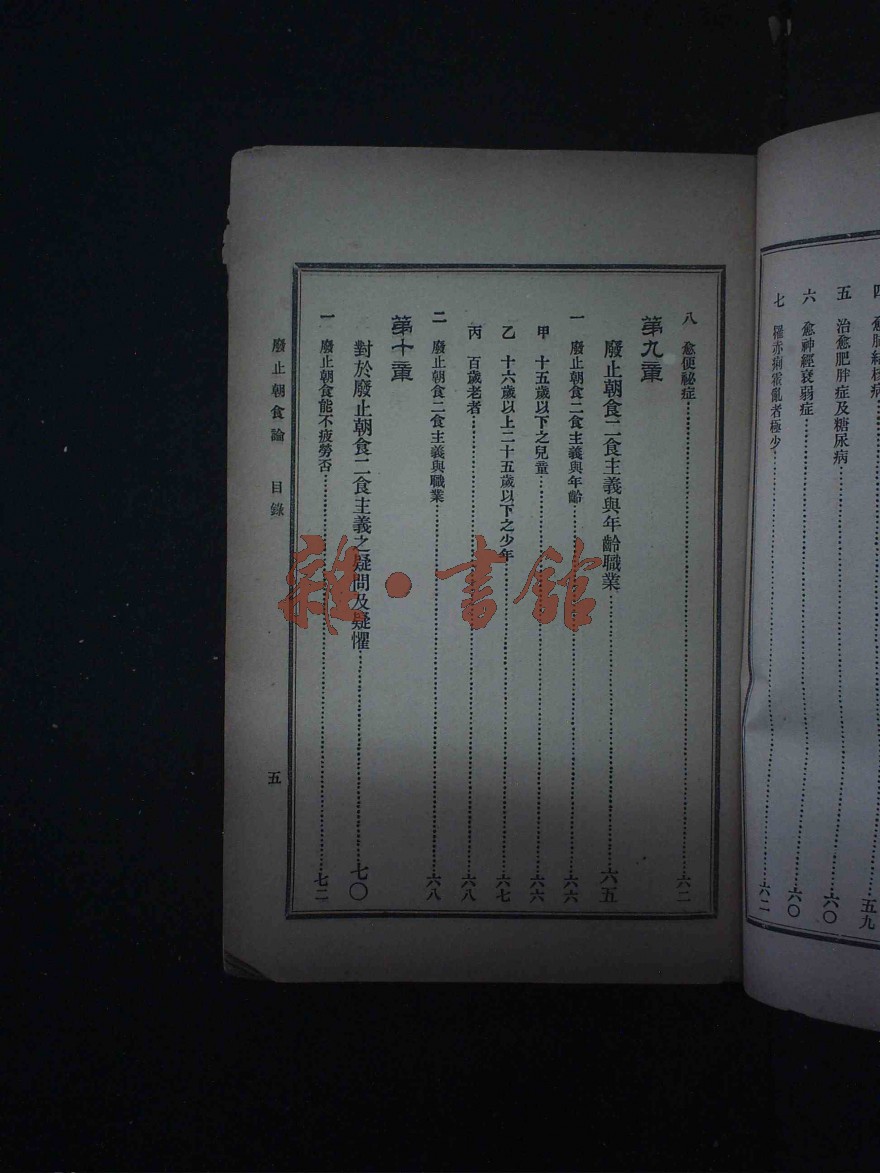 四　愈肺結核病……五九
五　治愈肥胖症及糖尿病……六〇
六　愈神經衰弱症……六〇
七　罹赤痢霍亂者極少……六二
八　愈便祕症……六二
第九章
廢止朝食二食主義與年齡職業……六五
一　廢止朝食二食主義與年齡……六六
甲　十五歲以下之兒童……六六
乙　十六歲以上二十五歲以下之少年……六七
丙　百歲老者……六八
二　廢止朝食二食主義與職業……六八
第十章
對於廢止朝食二食主義之疑問及疑懼……七〇
一　廢止朝食能不疲勞否……七二
廢止朝食論　目錄
五
雜·書館